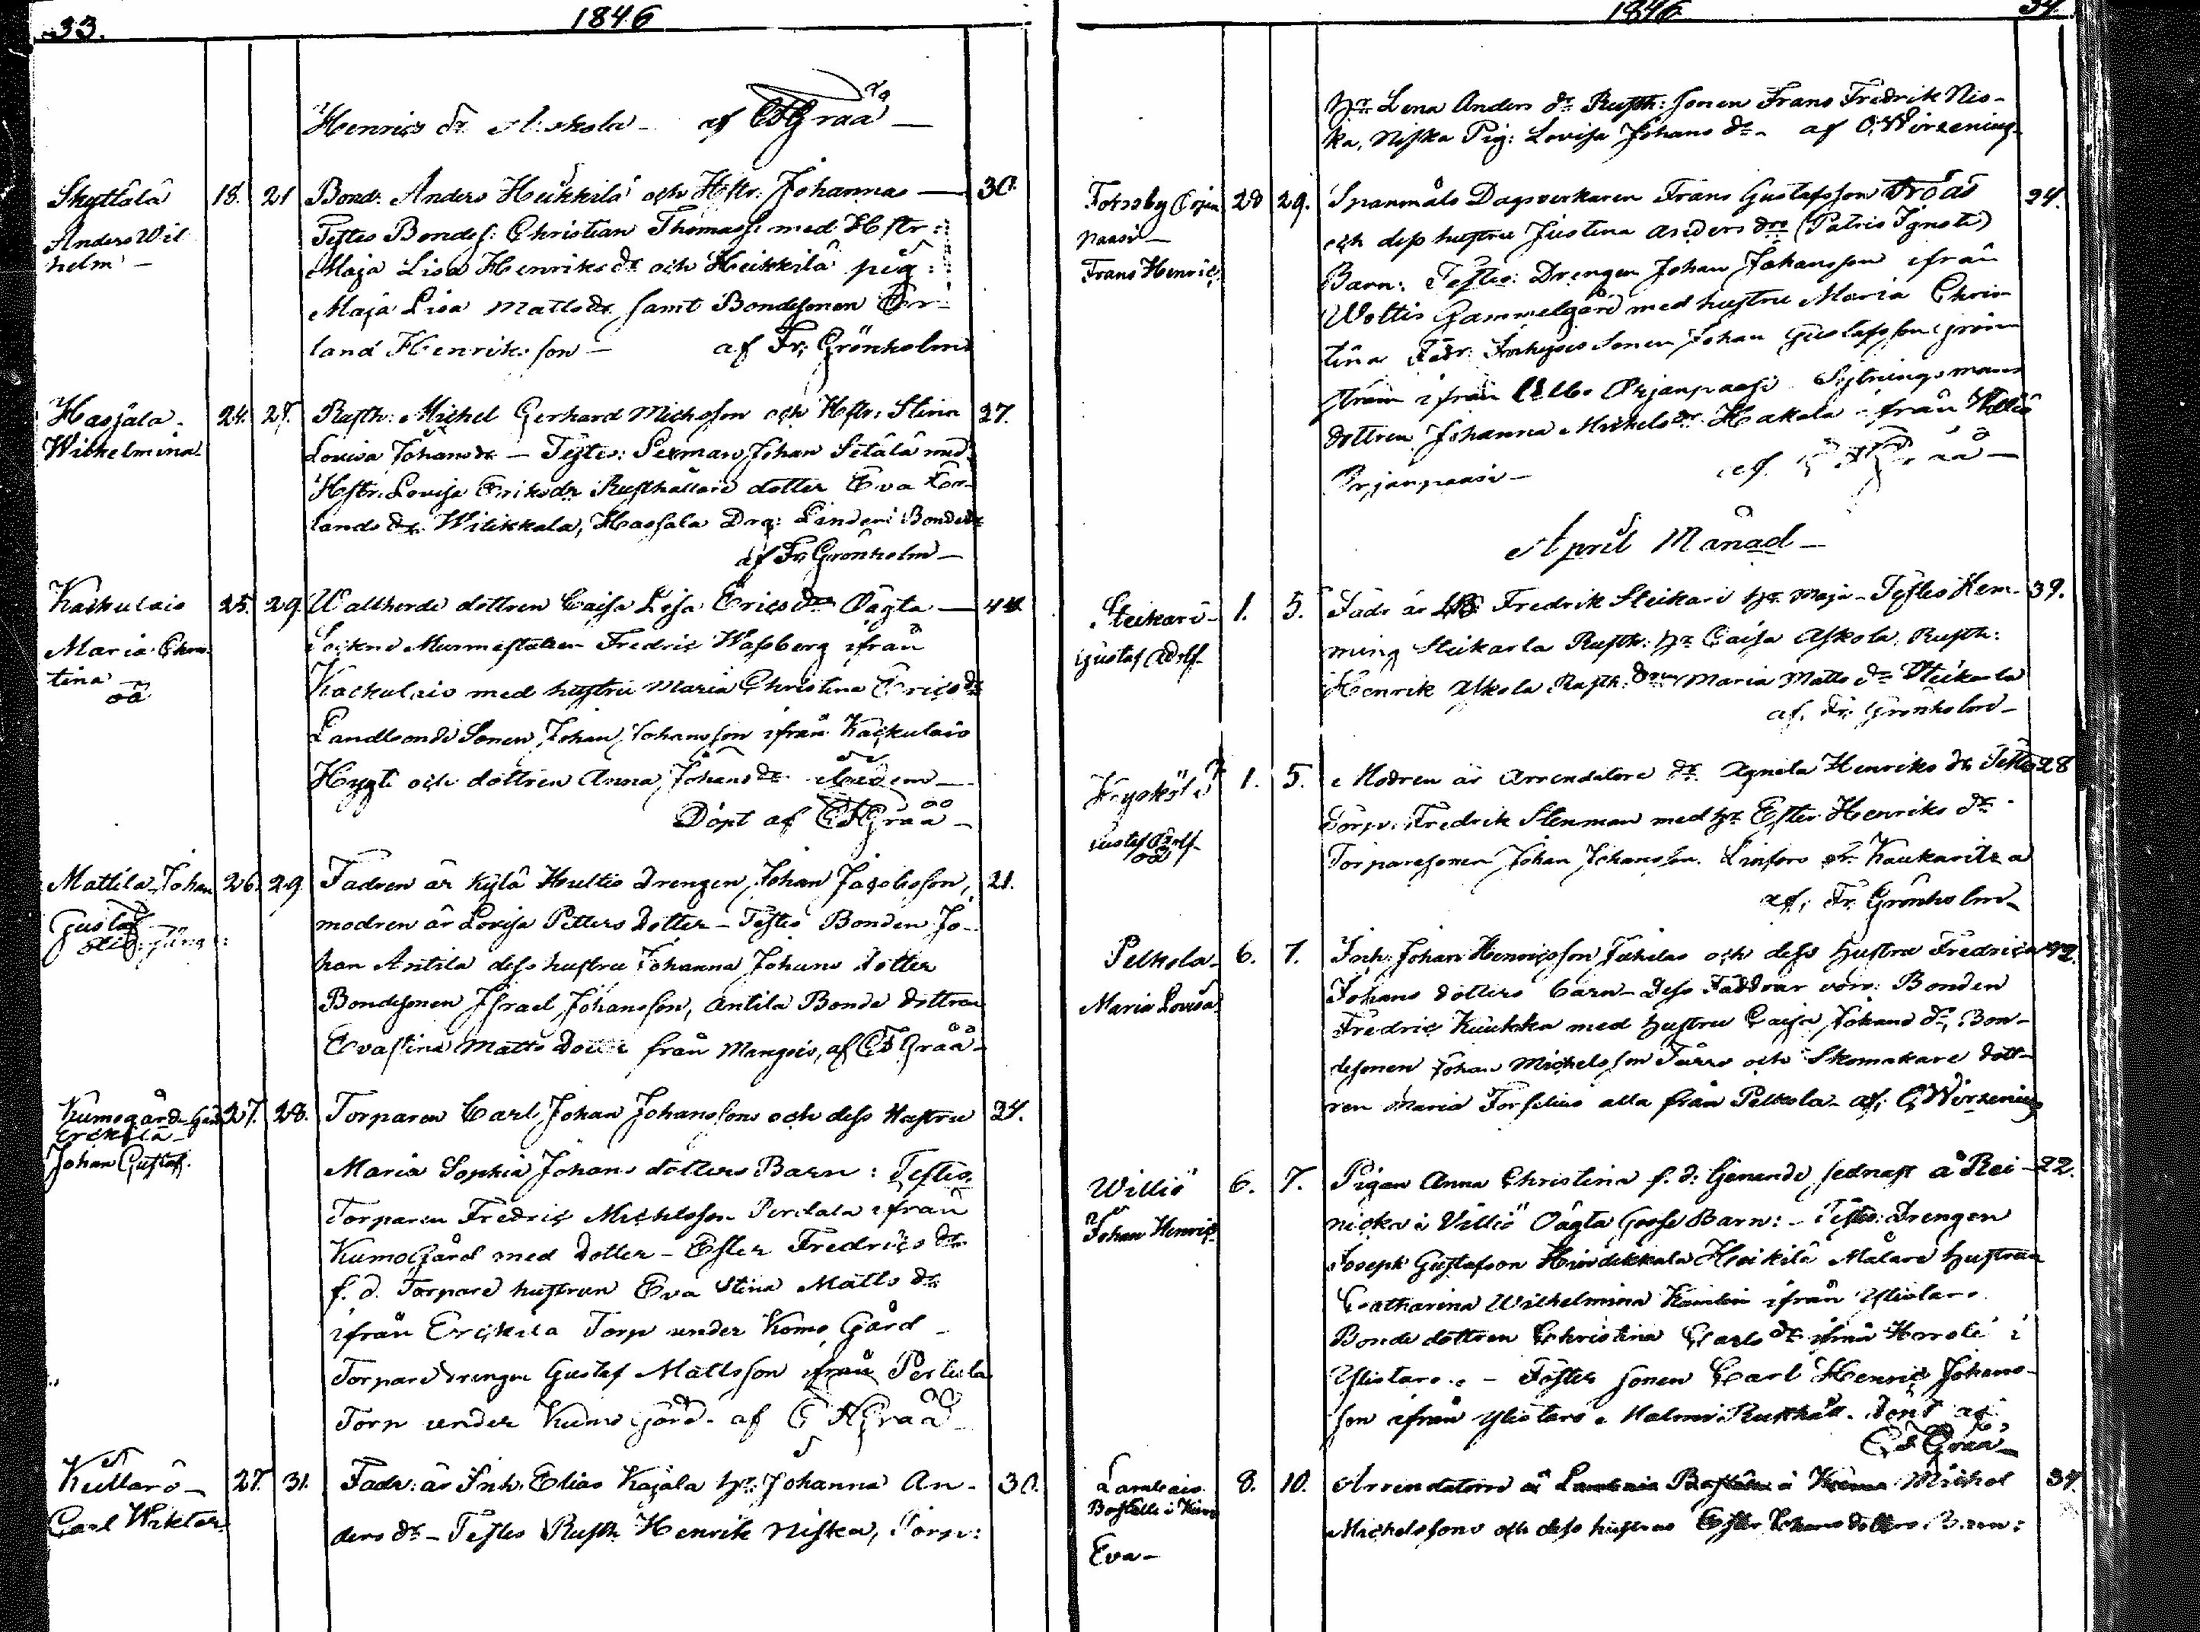 33.
1846
Henrics dr. Askola - af CFGraa -
Skyttälä
Anders Wil
helm -
18. 21
Bond: Anders Heikkilä och Hstr: Johanna - 30.
Testes Bondes: Christian Thomass: med Hstr:
Maja Lisa Henriksdr och Heikkilä pig:
Maja Lisa Mattsdr, samt Bondesonen Er-
land Henriksson - af Fr: Grönholm
Hasjala -
Wilhelmina
24. 27.
Rusth: Michel Gerhard Michsson och Hstr: Stina 27.
Lovisa Johansdr - Testes: Sexman Johan Sitälä med
Hstr: Lovisa Eriksdr Rusthållare dotter Eva Er-
lands dr. Witikkala, Hassala Drg: Bonde
af Fr: Grönholm -
Kackulais
Maria Chris
tina -
oä
25. 29.
Wallherde dottren Caisa Lisa Erics dr Oägta - 44.
Sockne Murmestaren Fredric Wassberg ifrån
Kackulais med hustru Maria Christina Erics dr
Landbonde Sonen Johan Johansson ifrån Kackulais
och dottren Anna Johans dr
Döpt af CFGraa -
Mattila Johan
Gustaf
26. 29.
Fadren är Kylä Hultis Drengen Johan Jacobsson, 21.
modren är Lovisa Petters Dotter - Testes Bonden Jo-
han Antila dess hustru Johanna Johans Dotter
Bondesonen Israel Johansson, Antila Bonde dottren
Eva Stina Matts Dotter från Mangois, af CFGråå -
Kumogård
Erckilä -
Johan Gustaf.
27. 28.
Torparen Carl Johan Johanssons och dess Hustru 24.
Maria Sophia Johans dotters Barn: Testes.
Torparen Fredric Michelsson Pertala ifrån
KumoGård med Dotter - Ester Fredrics dr
f. d. Torpare hustrun Eva Stina Matts dr
ifrån Erckila Torp under Komo Gård -
Torpare drengen Gustaf Mattsson ifrån Pertula
Torp under Kumo Gård - af CFGraa -
Kullarö -
Carl Wiktor
27. 31.
Fadr: är Inh: Elias Kajala hr: Johanna An- 30.
ders dr - Testes Rusth Henrik Niska, Torp:
1846
34.
hr Lena Anders dr Rusth: sonen Frans Fredrik Nis-
ka, Niska Pig: Lovisa Johans dr - af C:Wirzenius
Forsby Örjan
paasi -
Frans Henric
28 29.
Spanmåls Dagsverkaren Frans Gustafsson 24.
och dess hustru Justina Anders drs (Patris Ignoti)
Barn: Testes: Drengen Johan Johansson ifrån
Woitis Gammelgård med hustru Maria Chris
tina Inhyses Sonen Johan Gustafsson
ström ifrån Örjanpaasi Sytningsmans
dottren Johanna Mickelsdr Hakola ifrån
Örjanpaasi - af CFGraa -
April Månad -
Steikari -
Gustaf Adolf -
1. 5.
Fadr är Fredrik Steikari hr Maja - Testes Hem- 39.
ming Steikarla Rusth: hr Caisa Askola Rusth:
Henrik Askola Rusth: dren Maria Matts dr Steikarla
af. Fr: Grönholm -
Gustaf Adolf
oä
1. 5.
Modren är Arrendators dr Agneta Henriks dr Testes 28
Torp: Fredrik Stenman med hr Ester Henriks dr.
Torparesonen Johan Johansson Kaukaritza
af: Fr: Grönholm -
Pelkola -
Maria Lovisa
6. 7.
Inh: Johan Henricsson och dess hustru Fredrica
Johans dotters Barn - Dess Faddrar voro: Bonden
Fredric Kuukka med hustru Caisa Johans dr, Bon-
desonen Johan Michelsson och Skomakare dott-
ren Maria Forselius alla från Pelkola - af: C.Wirzenius
Williö
Johan Henric
6. 7.
Pigan Anna Christina f. d. sednast å Rei- 22.
nicka i Villiö Oägta Gosse Barn: - Testes: Drengen
Joseph Gustafson Heikilä Målare hustrun
Catharina Wilhelmina ifrån Ylistaro
Bonde dottren Christina Carls dr ifrån i
Ylistaro - Foster sonen Carl Henric Johans-
son ifrån Ylistaro Malmi Rusthåll. Döpt af
CFGraa -
Lambais
Boställe i
Eva -
8. 10.
Arrendatorn å Lambais Boställe i Michel 34.
Michelssons och dess hustrus Ester Johans dotters Barn: